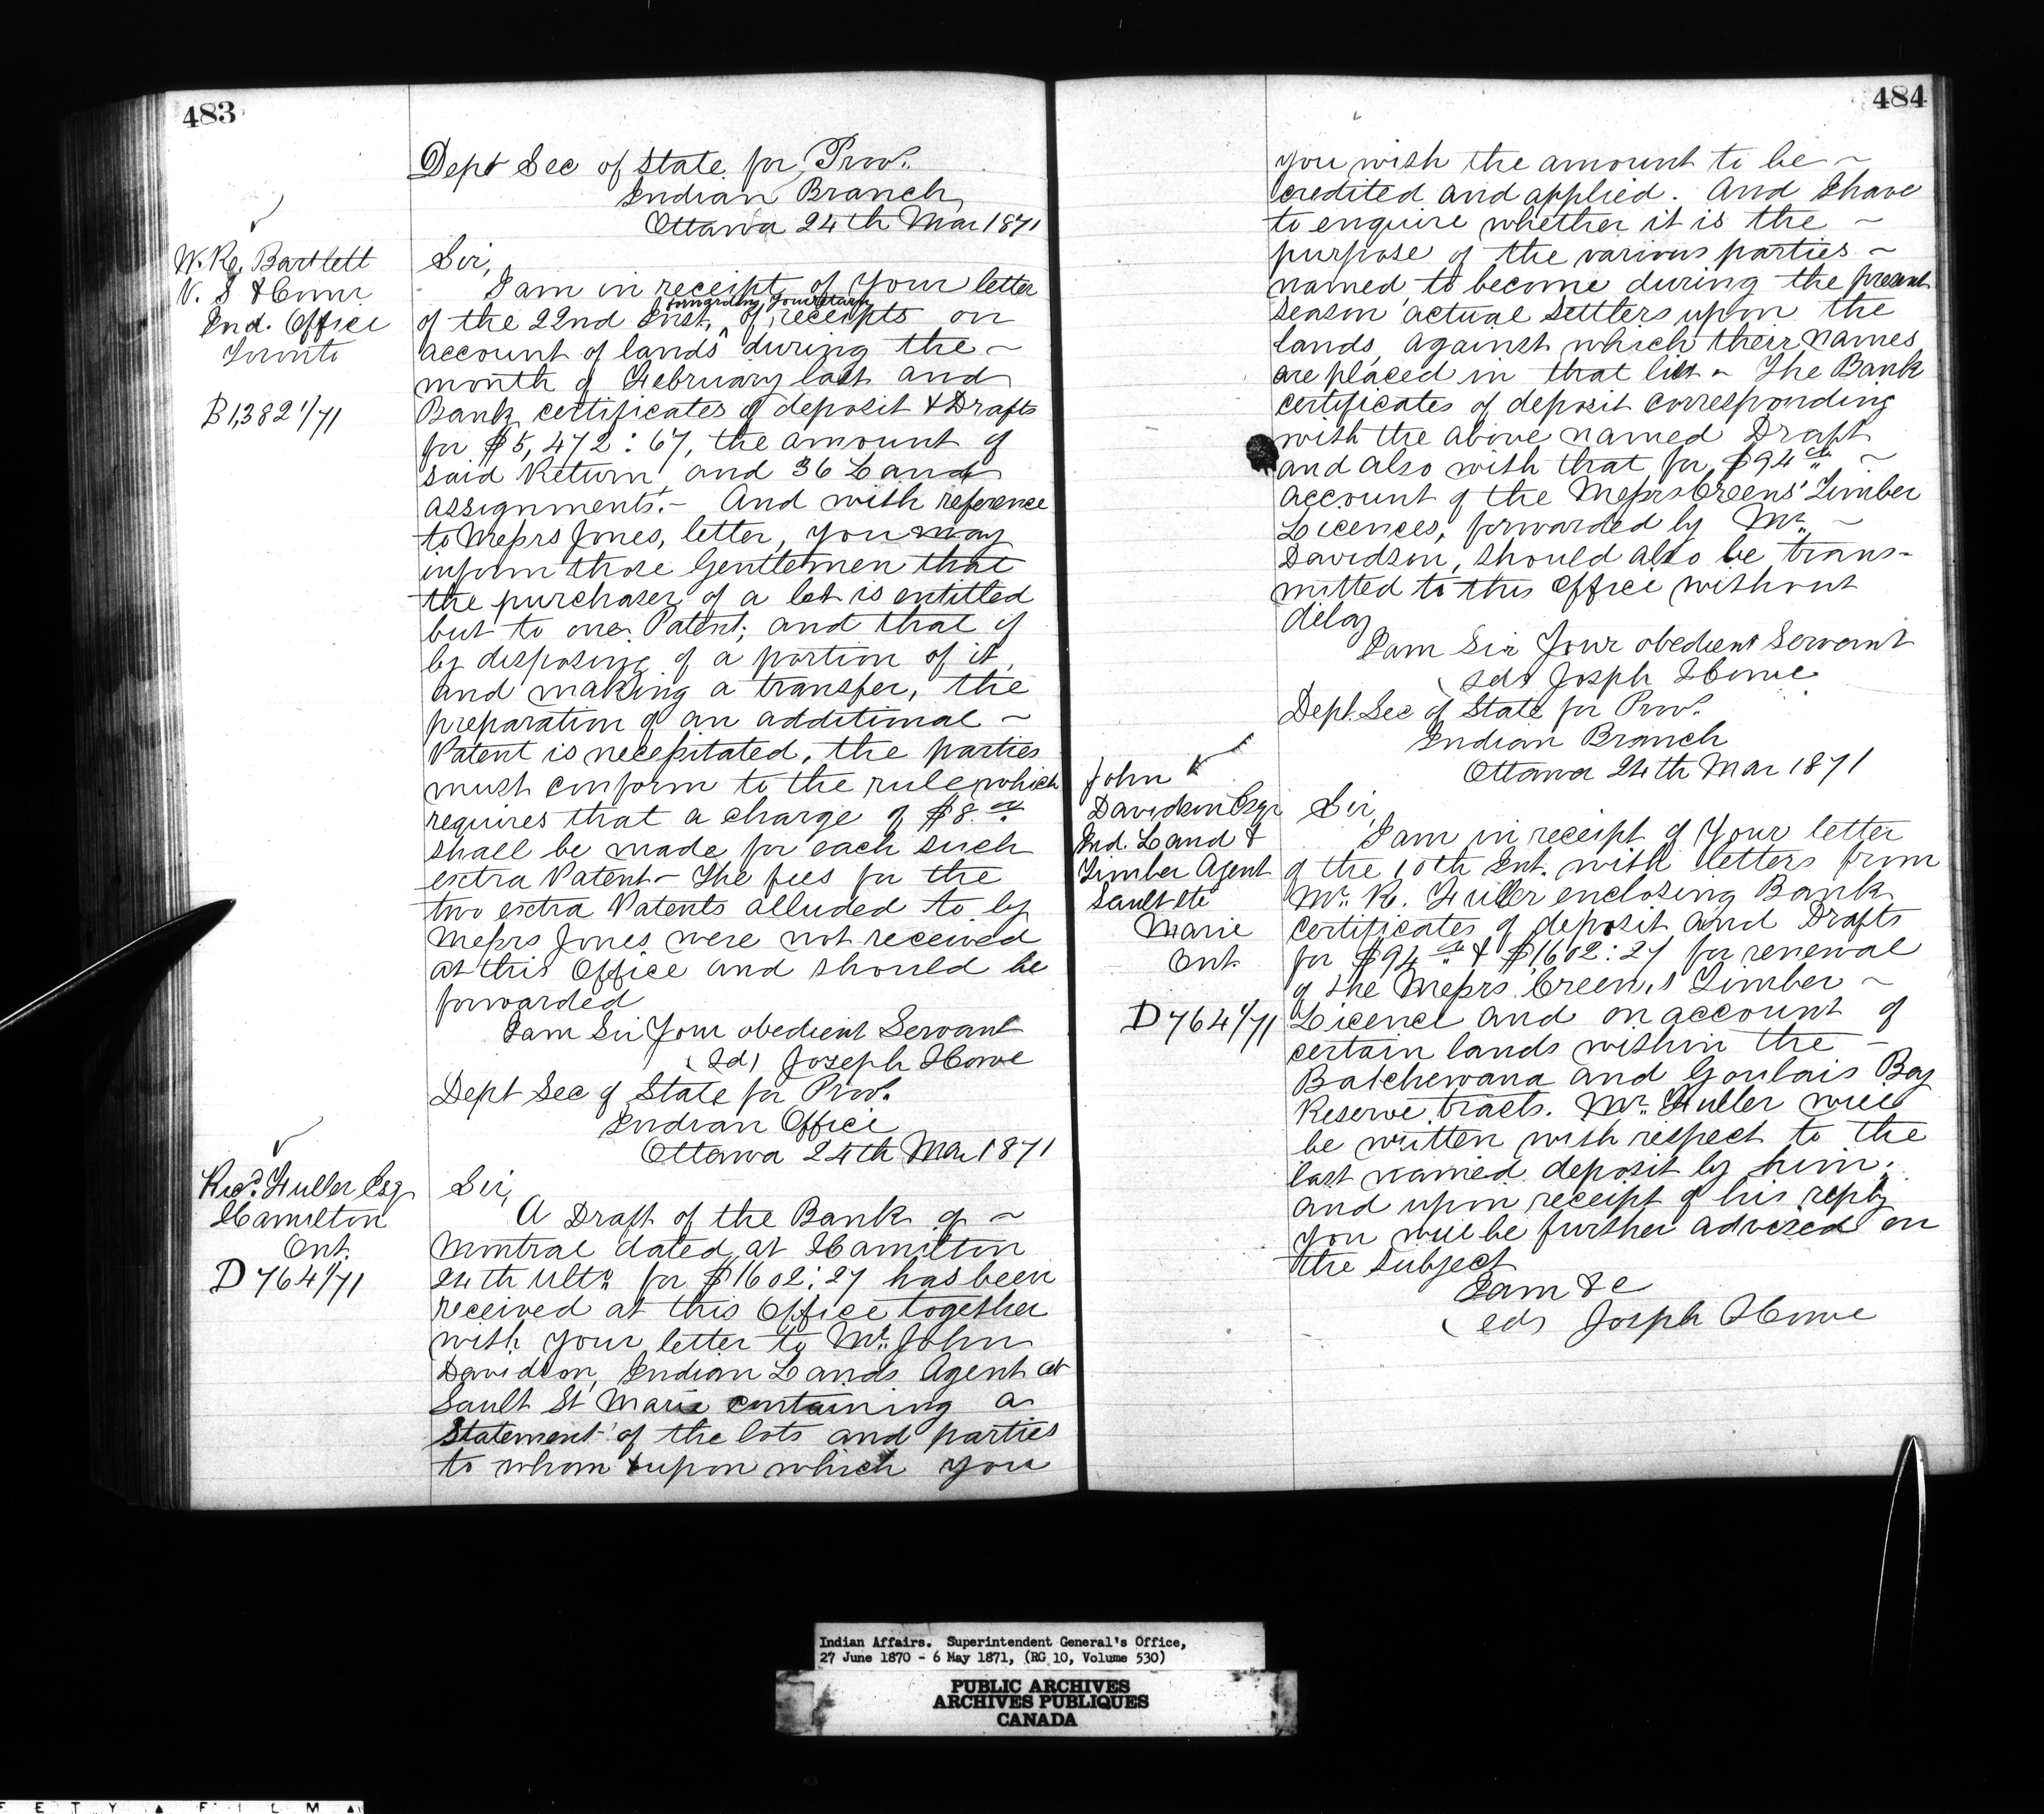 483
Dept Sec of State for Prov.
Indian Branch
Ottawa 24th Mar 1871
W. R. Bartlett
V. S & Comr
Ind. Office
Toronto
B1,382 1/71
Sir,
I am in receipt of Your letter
of the 22nd Inst, forwarding Your return of receipts on
account of lands during the ~
month of February last and
Bank certificates of deposit & Drafts
for $5,472:67, the amount of
said Return, and 36 Land
assignments.- And with reference
to Messrs Jones, letter, you may
inform those Gentlemen that
the purchaser of a lot is entitled
but to one Patent; and that if
by disposing of a portion of it,
and making a transfer, the
preparation of an additional ~
Patent is necessitated, the parties
must conform to the rule which
requires that a charge of $8.
shall be made for each such
extra Patent - The fees for the
two extra Patents alluded to by
Messrs Jones were not received
at this Office and should be
forwarded
I am Sir Your obedient Servant
(Sd) Joseph Howe
Dept Sec of State for Prov.
Indian Office
Ottawa 24th Mar 1871
Ricd. Fuller Esq
Hamilton
Ont.
D 764 1/71
Sir,
A Draft of the Bank of ~
Montral dated at Hamilton
24th Ulto. for $1602:27 has been
received at this Office together
with your letter to Mr. John
Davidson, Indian Lands Agent at
Sault St Marie containing a
Statement of the lots and parties
to whom & upon which you
484
you wish the amount to be ~
credited and applied. And I have
to enquire whether it is the ~
purpose of the various parties ~
named to become during the present
season actual settlers upon the
lands, against which their names
are placed in that list - The Bank
certificates of deposit corresponding
with the above named Draft
and also with that for $94 ~
account of the Messrs Greens' Timber
Licences, forwarded by Mr. ~
Davidson, should also be trans-
mitted to this Office without
delay
I am Sir Your obedient Servant
(sd) Joseph Howe
Dept. Sec of State for Prov.
Indian Branch
Ottawa 24th Mar 1871
John
Davidson Esqr
Ind. Land &
Timber Agent
Sault Ste
Marie
Ont.
D 764 1/71
Sir,
I am in receipt of Your letter
of the 10th Int. with letters from
Mr. R. Fuller enclosing Bank
certificates of deposit and Drafts
for $94 & $1,602:27 for renewal
of the Messrs Green,s Timber ~
Licence and on account of
certain lands within the -
Batchewana and Goulais Bay
Reserve tracts. Mr. Fuller will
be written with respect to the
last named deposit by him;
and upon receipt of his reply
you will be further advised on
the subject
I am &c
(sd) Joseph Howe
Indian Affairs. Superintendent General's Office,
27 June 1870 - 6 May 1871, (RG 10, Volume 530)
PUBLIC ARCHIVES
ARCHIVES PUBLIQUES
CANADA
E T Y ▲ F I L M ▲